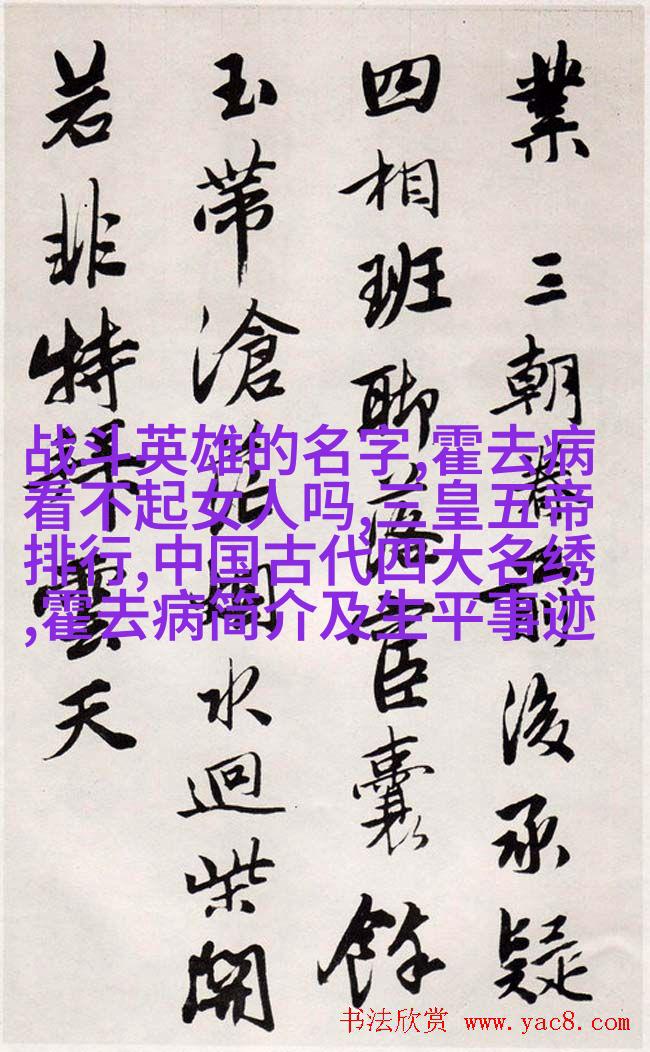 業 三朝前後承疑
四相班聊落宦囊餘
玉帶滄浪水迴柴開
若非特拜雲天
战斗英雄的名字,霍去病
看不起女人吗,三皇五帝
排行,中国古代四大名绣
,霍去病简介及生平事迹
书法欣赏 www.yac8.com